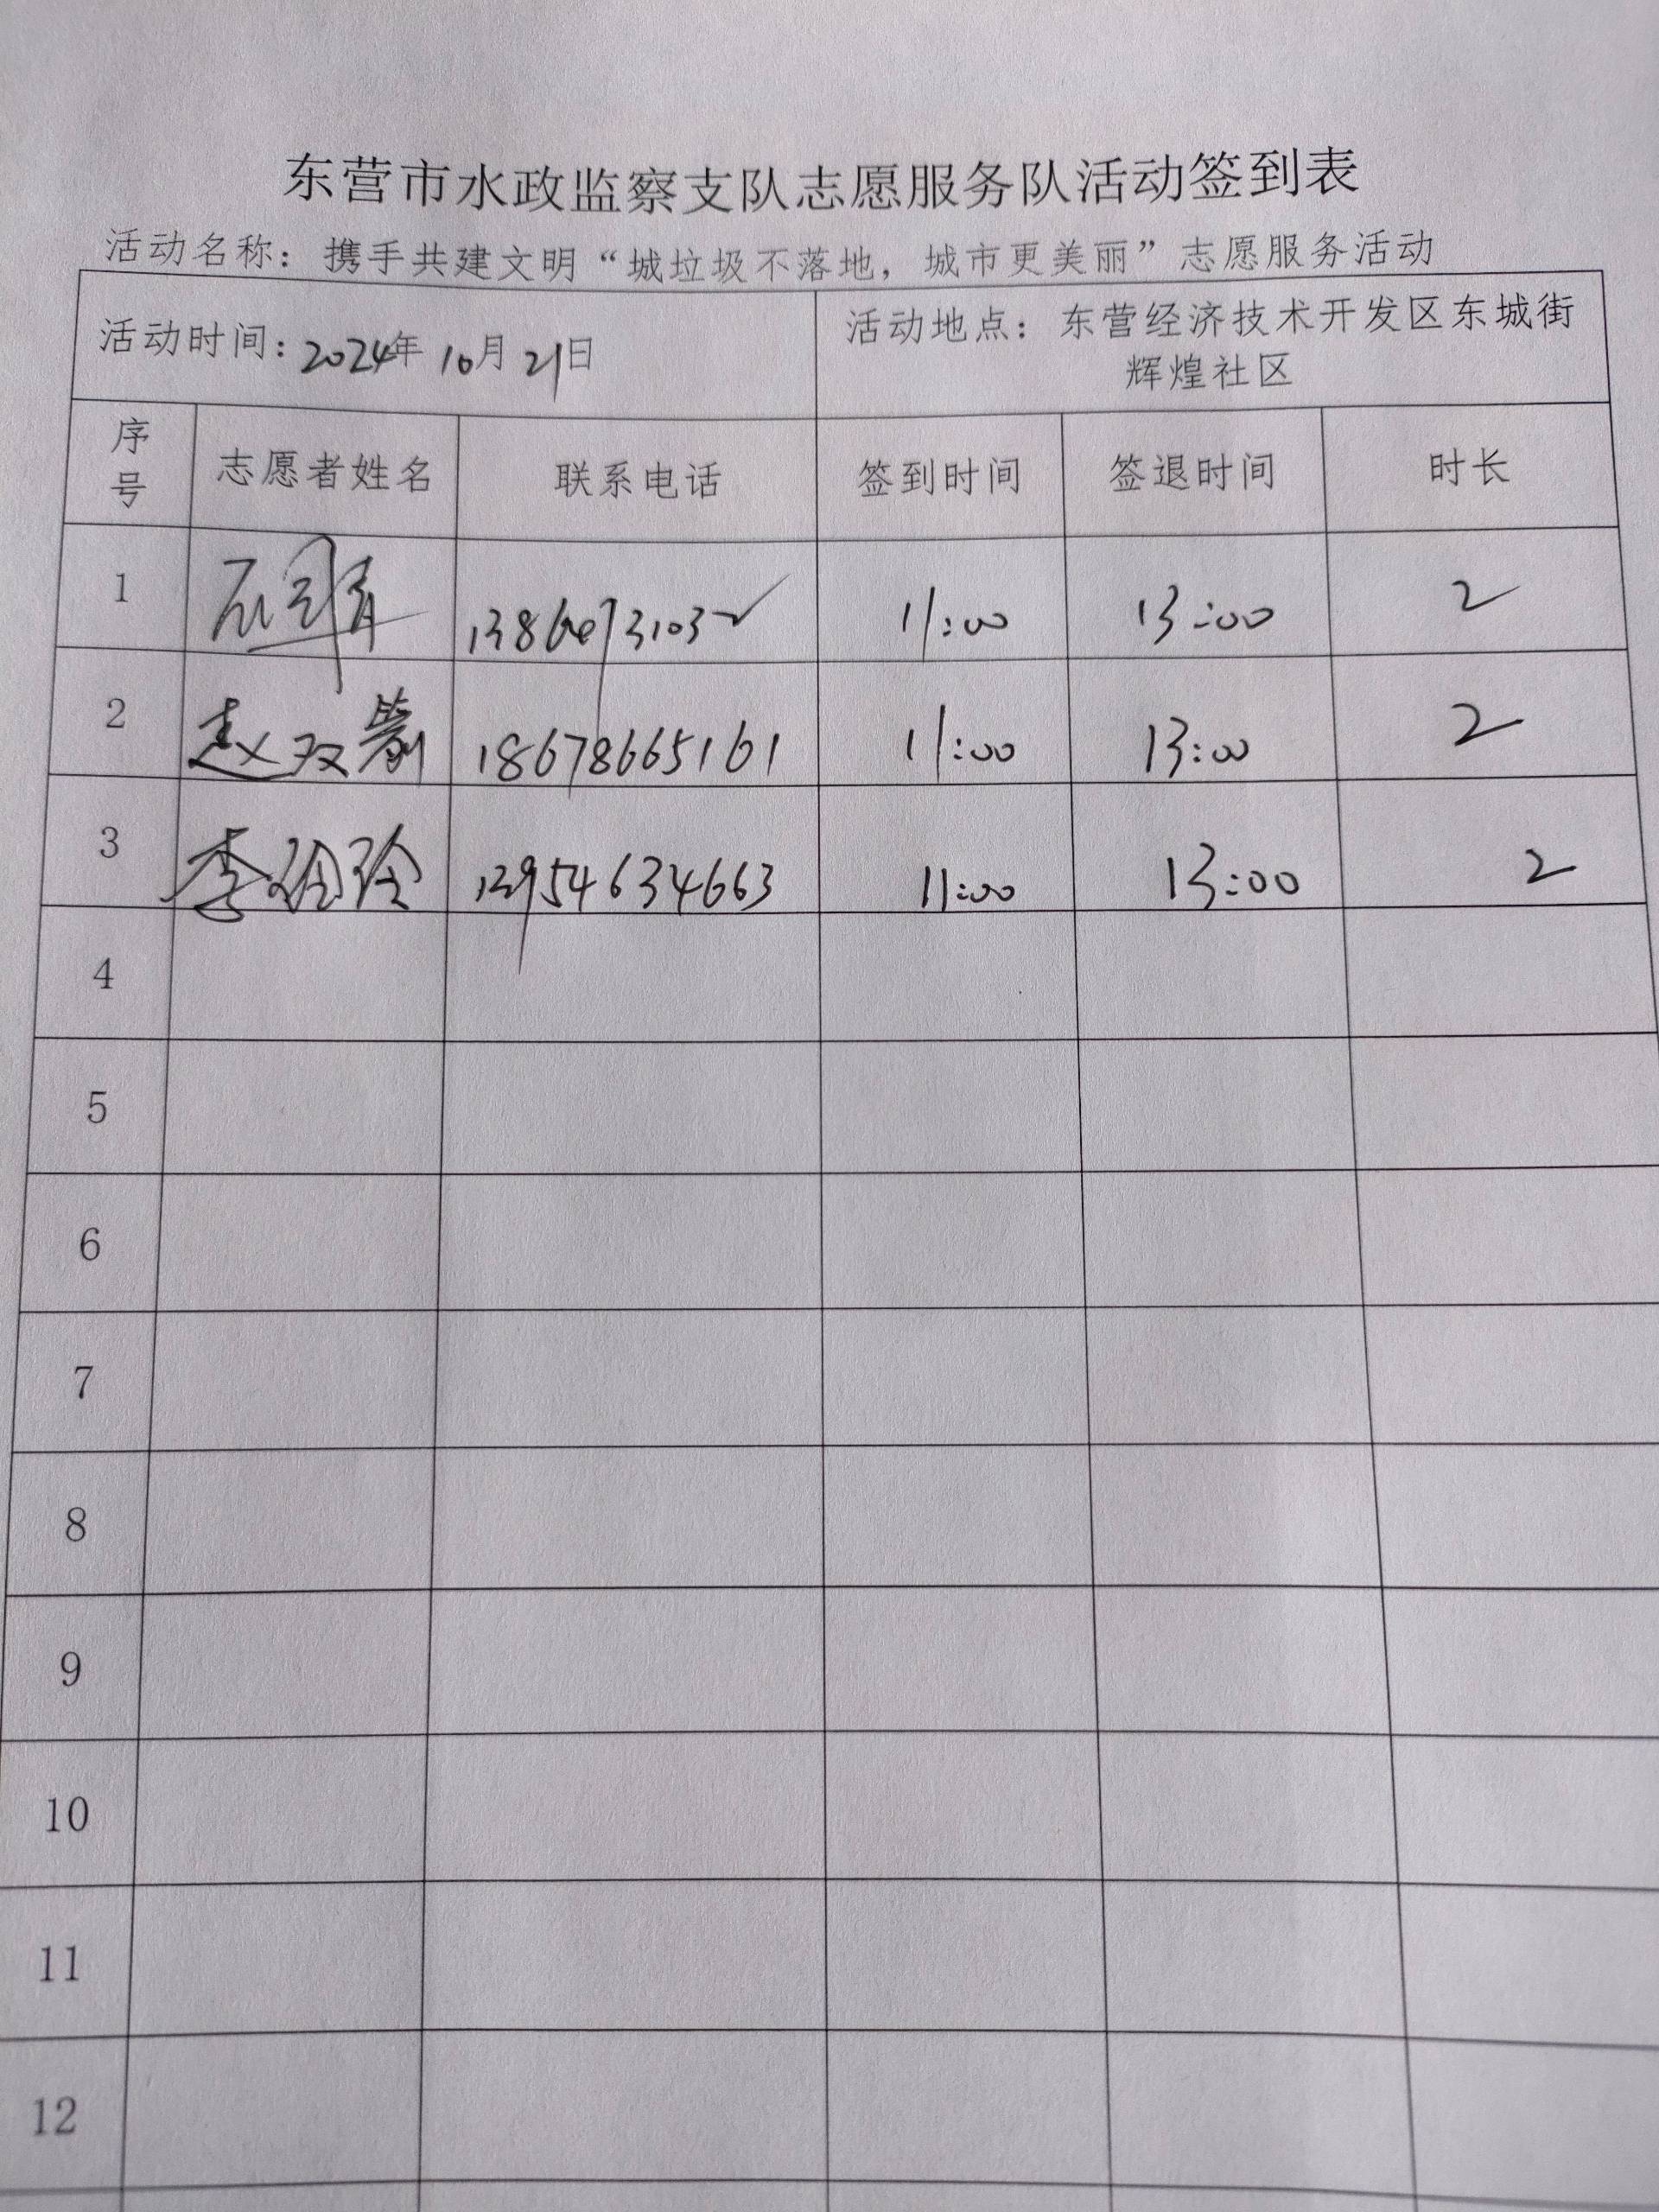 东营市水政监察支队志愿服务队活动签到表
活动名称：携手共建文明“城垃圾不落地，城市更美丽”志愿服务活动
活动时间：2024年 10月 21日 活动地点：东营经济技术开发区东城街
辉煌社区
序号 志愿者姓名 联系电话 签到时间 签退时间 时长
1 11:00 13:00 2
2 赵双 18678665161 11:00 13:00 2
3 李玲玲 13954634663 11:00 13:00 2
4
5
6
7
8
9
10
11
12